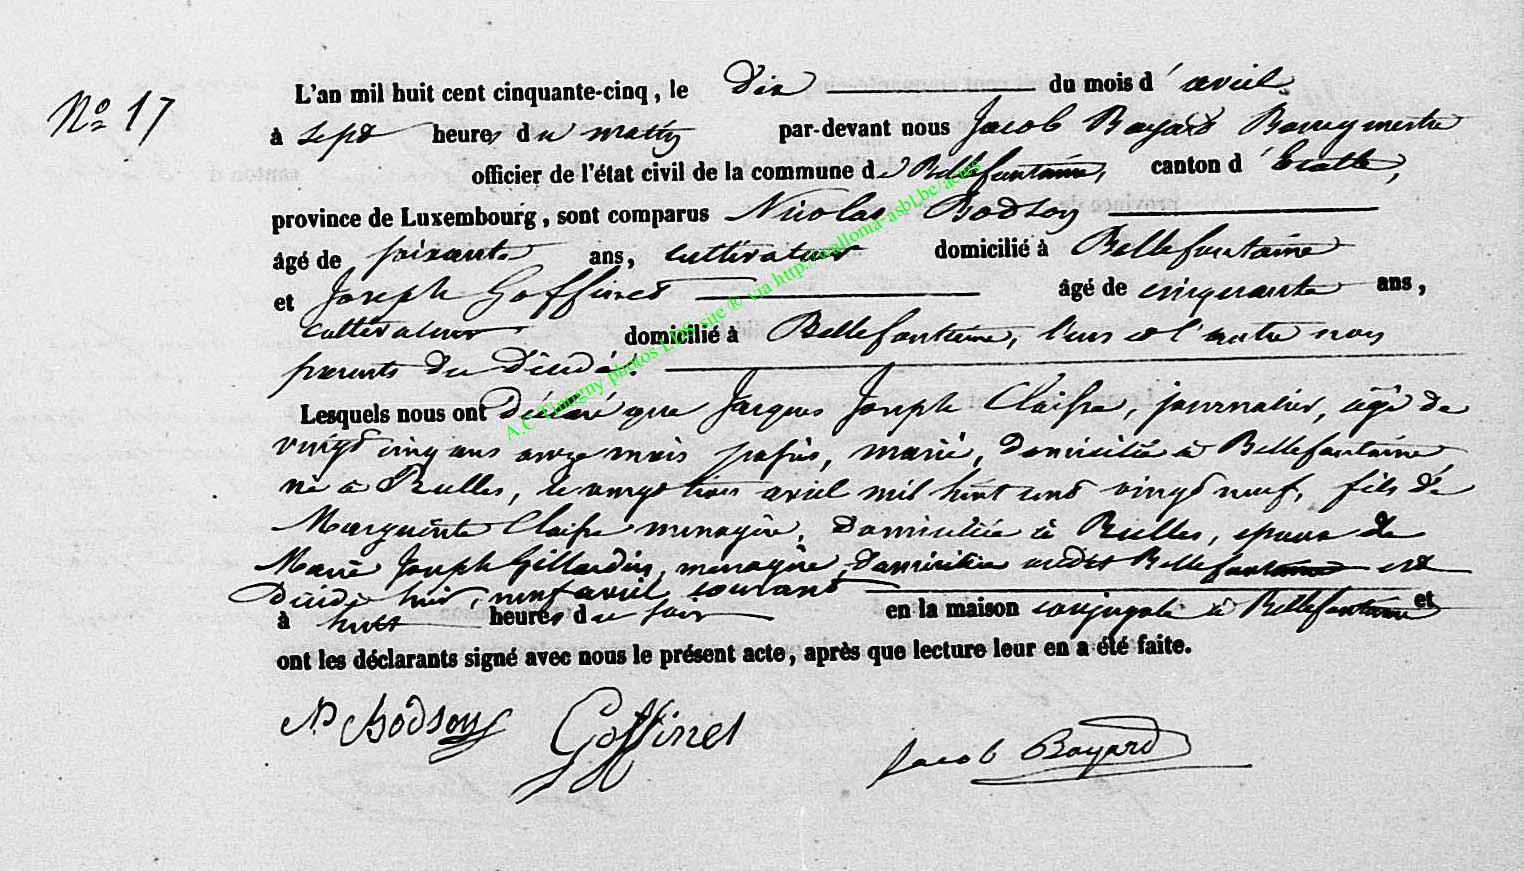 N° 17
L'an mil huit cent cinquante-cinq, le Dix du mois d'avril
à sept heures du matin par-devant nous Jacob Bayard Bourgmestre
officier de l'état civil de la commune de Bellefontaine, canton d'Etalle,
province de Luxembourg, sont comparus Nicolas Bodson
âgé de soixante ans, cultivateur domicilié à Bellefontaine
et Joseph Goffinet âgé de cinquante ans,
cultivateur domicilié à Bellefontaine, l'un et l'autre non
parents du décédé.
Lesquels nous ont déclaré que Jacques Joseph Claisse, journalier, âgé de
vingt cinq ans onze mois passés, marié, domicilié à Bellefontaine
né à Rulles, le vingt trois avril mil huit cent vingt neuf, fils de
Marguerite Claisse menagère, domiciliée à Rulles, epoux de
Marie Joseph Gillardin, menagère, domiciliée audit Bellefontaine est
décédé hier, neuf avril courant
à huit heures du soir en la maison conjugale à Bellefontaine et
ont les déclarants signé avec nous le présent acte, après que lecture leur en a été faite.
N. Bodson Goffinet Jacob Bayard
A.C Tintigny photos LDS site ® via http://wallonia-asbl.be/actes